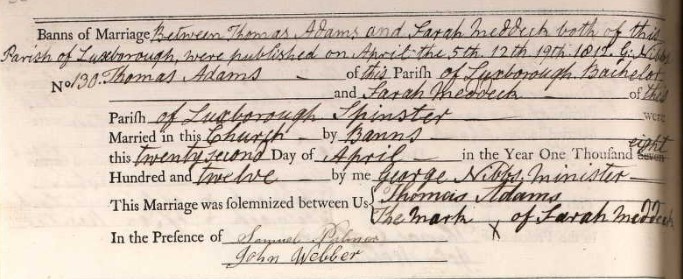 Banns of Marriage Between Thomas Adams and Sarah Meddeck both of this
Parish of Luxborough, were published on April the 5th 12th 19th 1812, G. Nibbs
No 130. Thomas Adams of this Parish of Luxborough Bachelor
and Sarah Meddeck of this
Parish of Luxborough Spinster were
Married in this Church by Banns
this twenty second Day of April in the Year One Thousand Seven eight
Hundred and twelve by me George Nibbs, Minister
This Marriage was solemnized between Us Thomas Adams
The Mark X of Sarah Meddeck
In the Presence of Samuel Palmer
John Webber